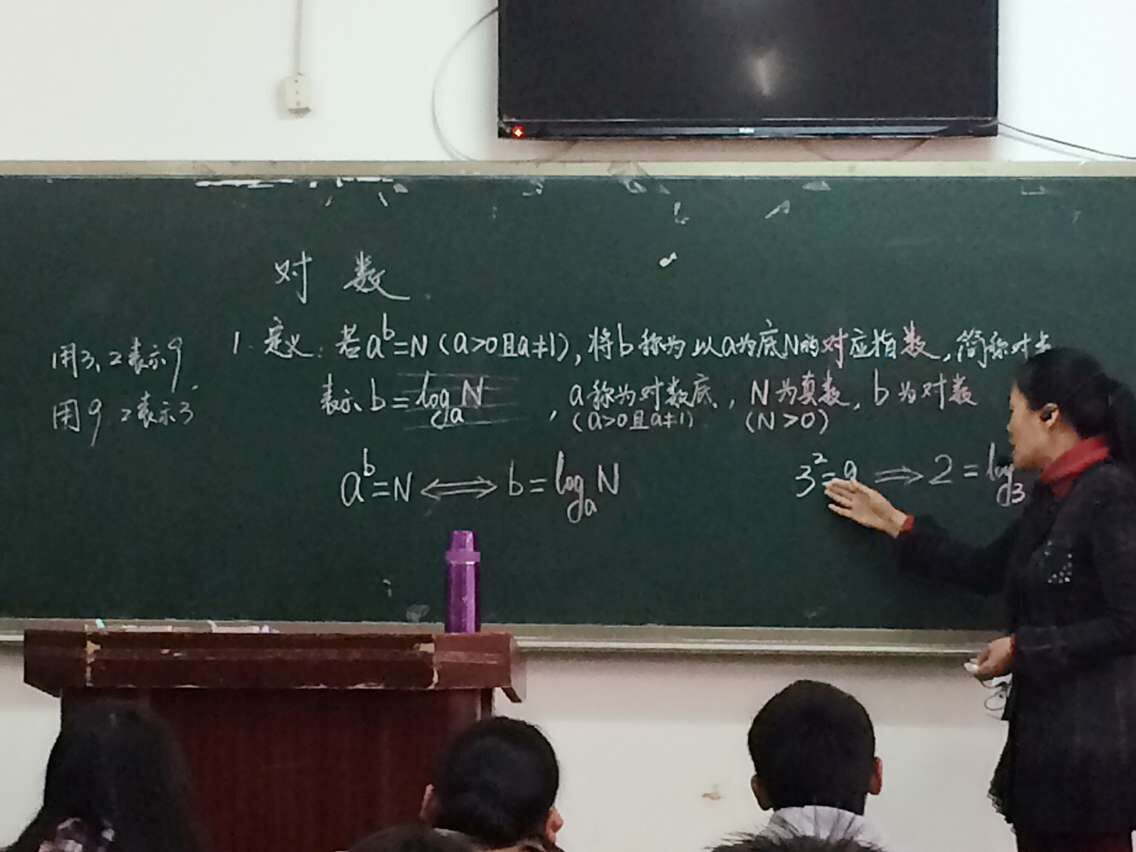 对数
用3、2表示9
用9 2表示3
1. 定义: 若a^b=N (a>0且a≠1), 将b称为以a为底N的对应指数, 简称对
表示b=log_a N, a称为对数底, N为真数, b为对数
(a>0且a≠1) (N>0)
a^b=N ⟺ b=log_a N
3^2=9 ⟹ 2=log_3